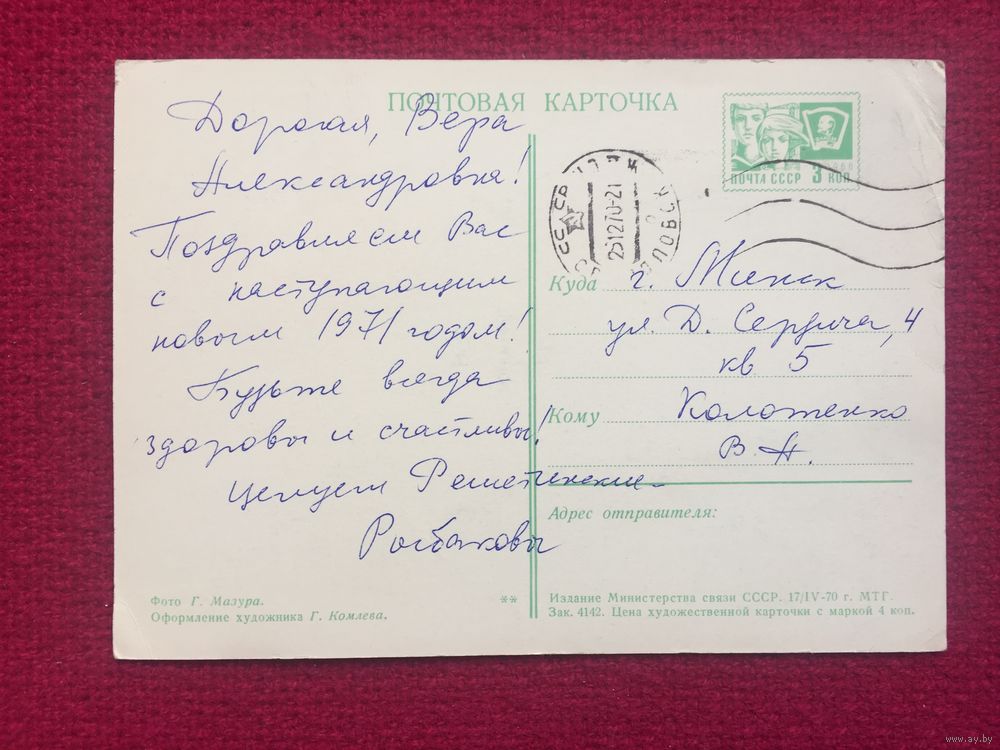 ПОЧТОВАЯ КАРТОЧКА
Дорогая, Вера
Александровна!
Поздравляем Вас
с наступающим
новым 1971 годом!
Будьте всегда
здоровы и счастливы!
Целуем Решетинские-
Рыбаковы
Фото Г. Мазура.
Оформление художника Г. Комлева.
**
ПОЧТА СССР 3 КОП
1966
СССР
251270-21
Куда г. Минск
ул. Д. Сердича, 4
кв 5
Кому Колотенко
В. А.
Адрес отправителя:
Издание Министерства связи СССР. 17/IV-70 г. МТГ.
Зак. 4142. Цена художественной карточки с маркой 4 коп.
www.ay.by